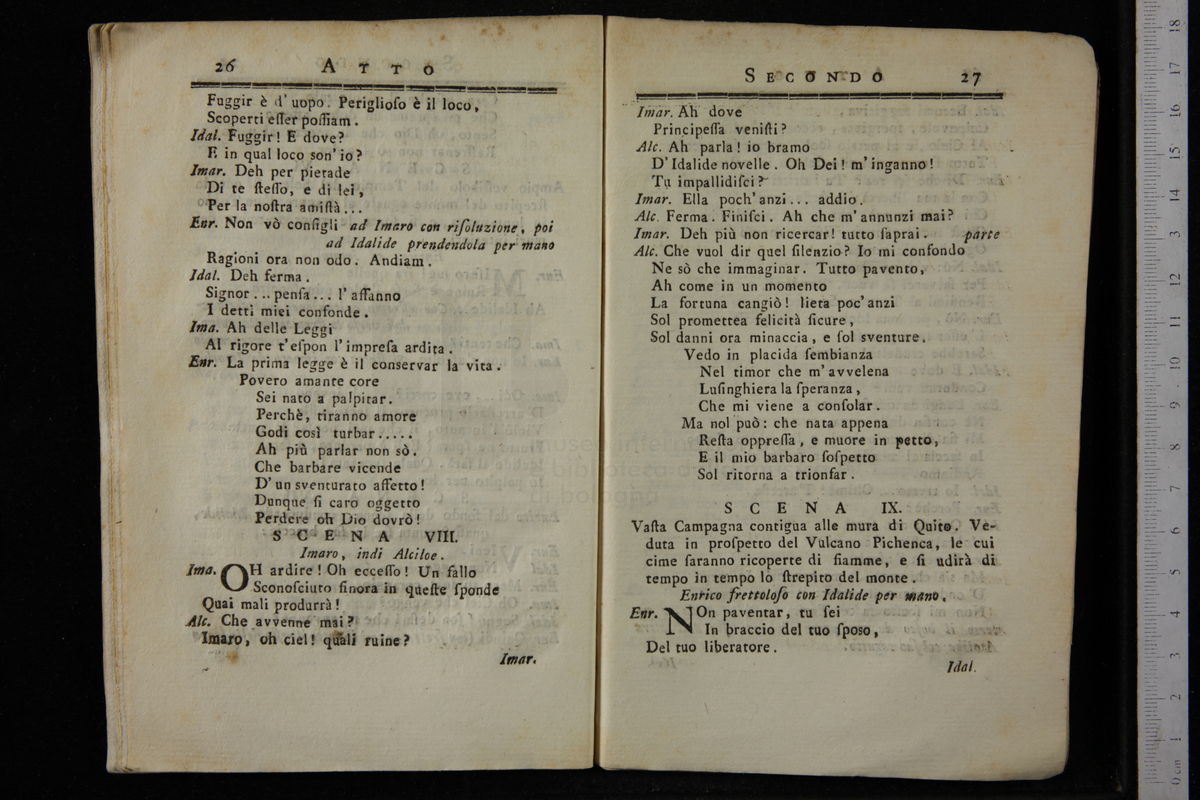 26 ATTO
Fuggir è d' uopo. Periglioſo è il loco,
Scoperti eſſer poſſiam.
Idal. Fuggir! E dove?
E in qual loco son' io?
Imar. Deh per pietade
Di te ſteſſo, e di lei,
Per la noſtra amiſtà...
Enr. Non vò conſigli ad Imaro con riſoluzione, poi
ad Idalide prendendola per mano
Ragioni ora non odo. Andiam.
Idal. Deh ferma.
Signor... penſa... l' affanno
I detti miei confonde.
Ima. Ah delle Leggi
Al rigore t'eſpon l' impreſa ardita.
Enr. La prima legge è il conservar la vita.
Povero amante core
Sei nato a palpitar.
Perchè, tiranno amore
Godi così turbar.....
Ah più parlar non sò.
Che barbare vicende
D' un sventurato affetto!
Dunque ſi caro oggetto
Perdere oh Dio dovrò!
SCENA VIII.
Imaro, indi Alciloe.
Ima. OH ardire! Oh ecceſſo! Un fallo
Sconoſciuto ſinora in queſte ſponde
Quai mali produrrà!
Alc. Che avvenne mai?
Imaro, oh ciel! quali ruine?
Imar.
SECONDO 27
Imar. Ah dove
Principeſſa veniſti?
Alc. Ah parla! io bramo
D' Idalide novelle. Oh Dei! m' inganno!
Tu impallidiſci?
Imar. Ella poch' anzi... addio.
Alc. Ferma. Finiſci. Ah che m' annunzi mai?
Imar. Deh più non ricercar! tutto ſaprai. parte
Alc. Che vuol dir quel ſilenzio? Io mi confondo
Ne sò che immaginar. Tutto pavento,
Ah come in un momento
La fortuna cangiò! lieta poc' anzi
Sol promettea felicità ſicure,
Sol danni ora minaccia, e ſol sventure.
Vedo in placida ſembianza
Nel timor che m' avvelena
Luſinghiera la ſperanza,
Che mi viene a conſolar.
Ma nol può: che nata appena
Reſta oppreſſa, e muore in petto,
E il mio barbaro ſoſpetto
Sol ritorna a trionfar.
SCENA IX.
Vaſta Campagna contigua alle mura di Quito. Ve-
duta in proſpetto del Vulcano Pichenca, le cui
cime ſaranno ricoperte di fiamme, e ſi udirà di
tempo in tempo lo ſtrepito del monte.
Enrico frettoloſo con Idalide per mano.
Enr. NOn paventar, tu ſei
In braccio del tuo ſposo,
Del tuo liberatore.
Idal.